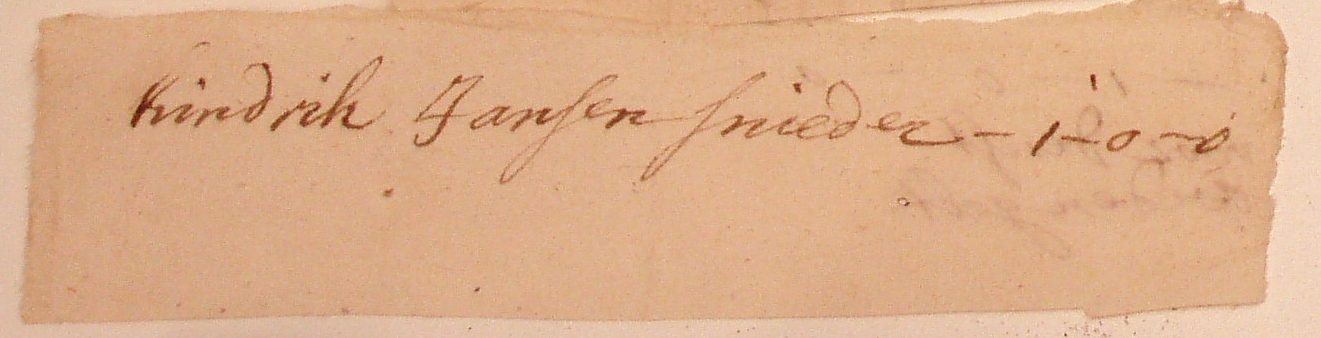 hindrik Jansen snieder - 1-0-0